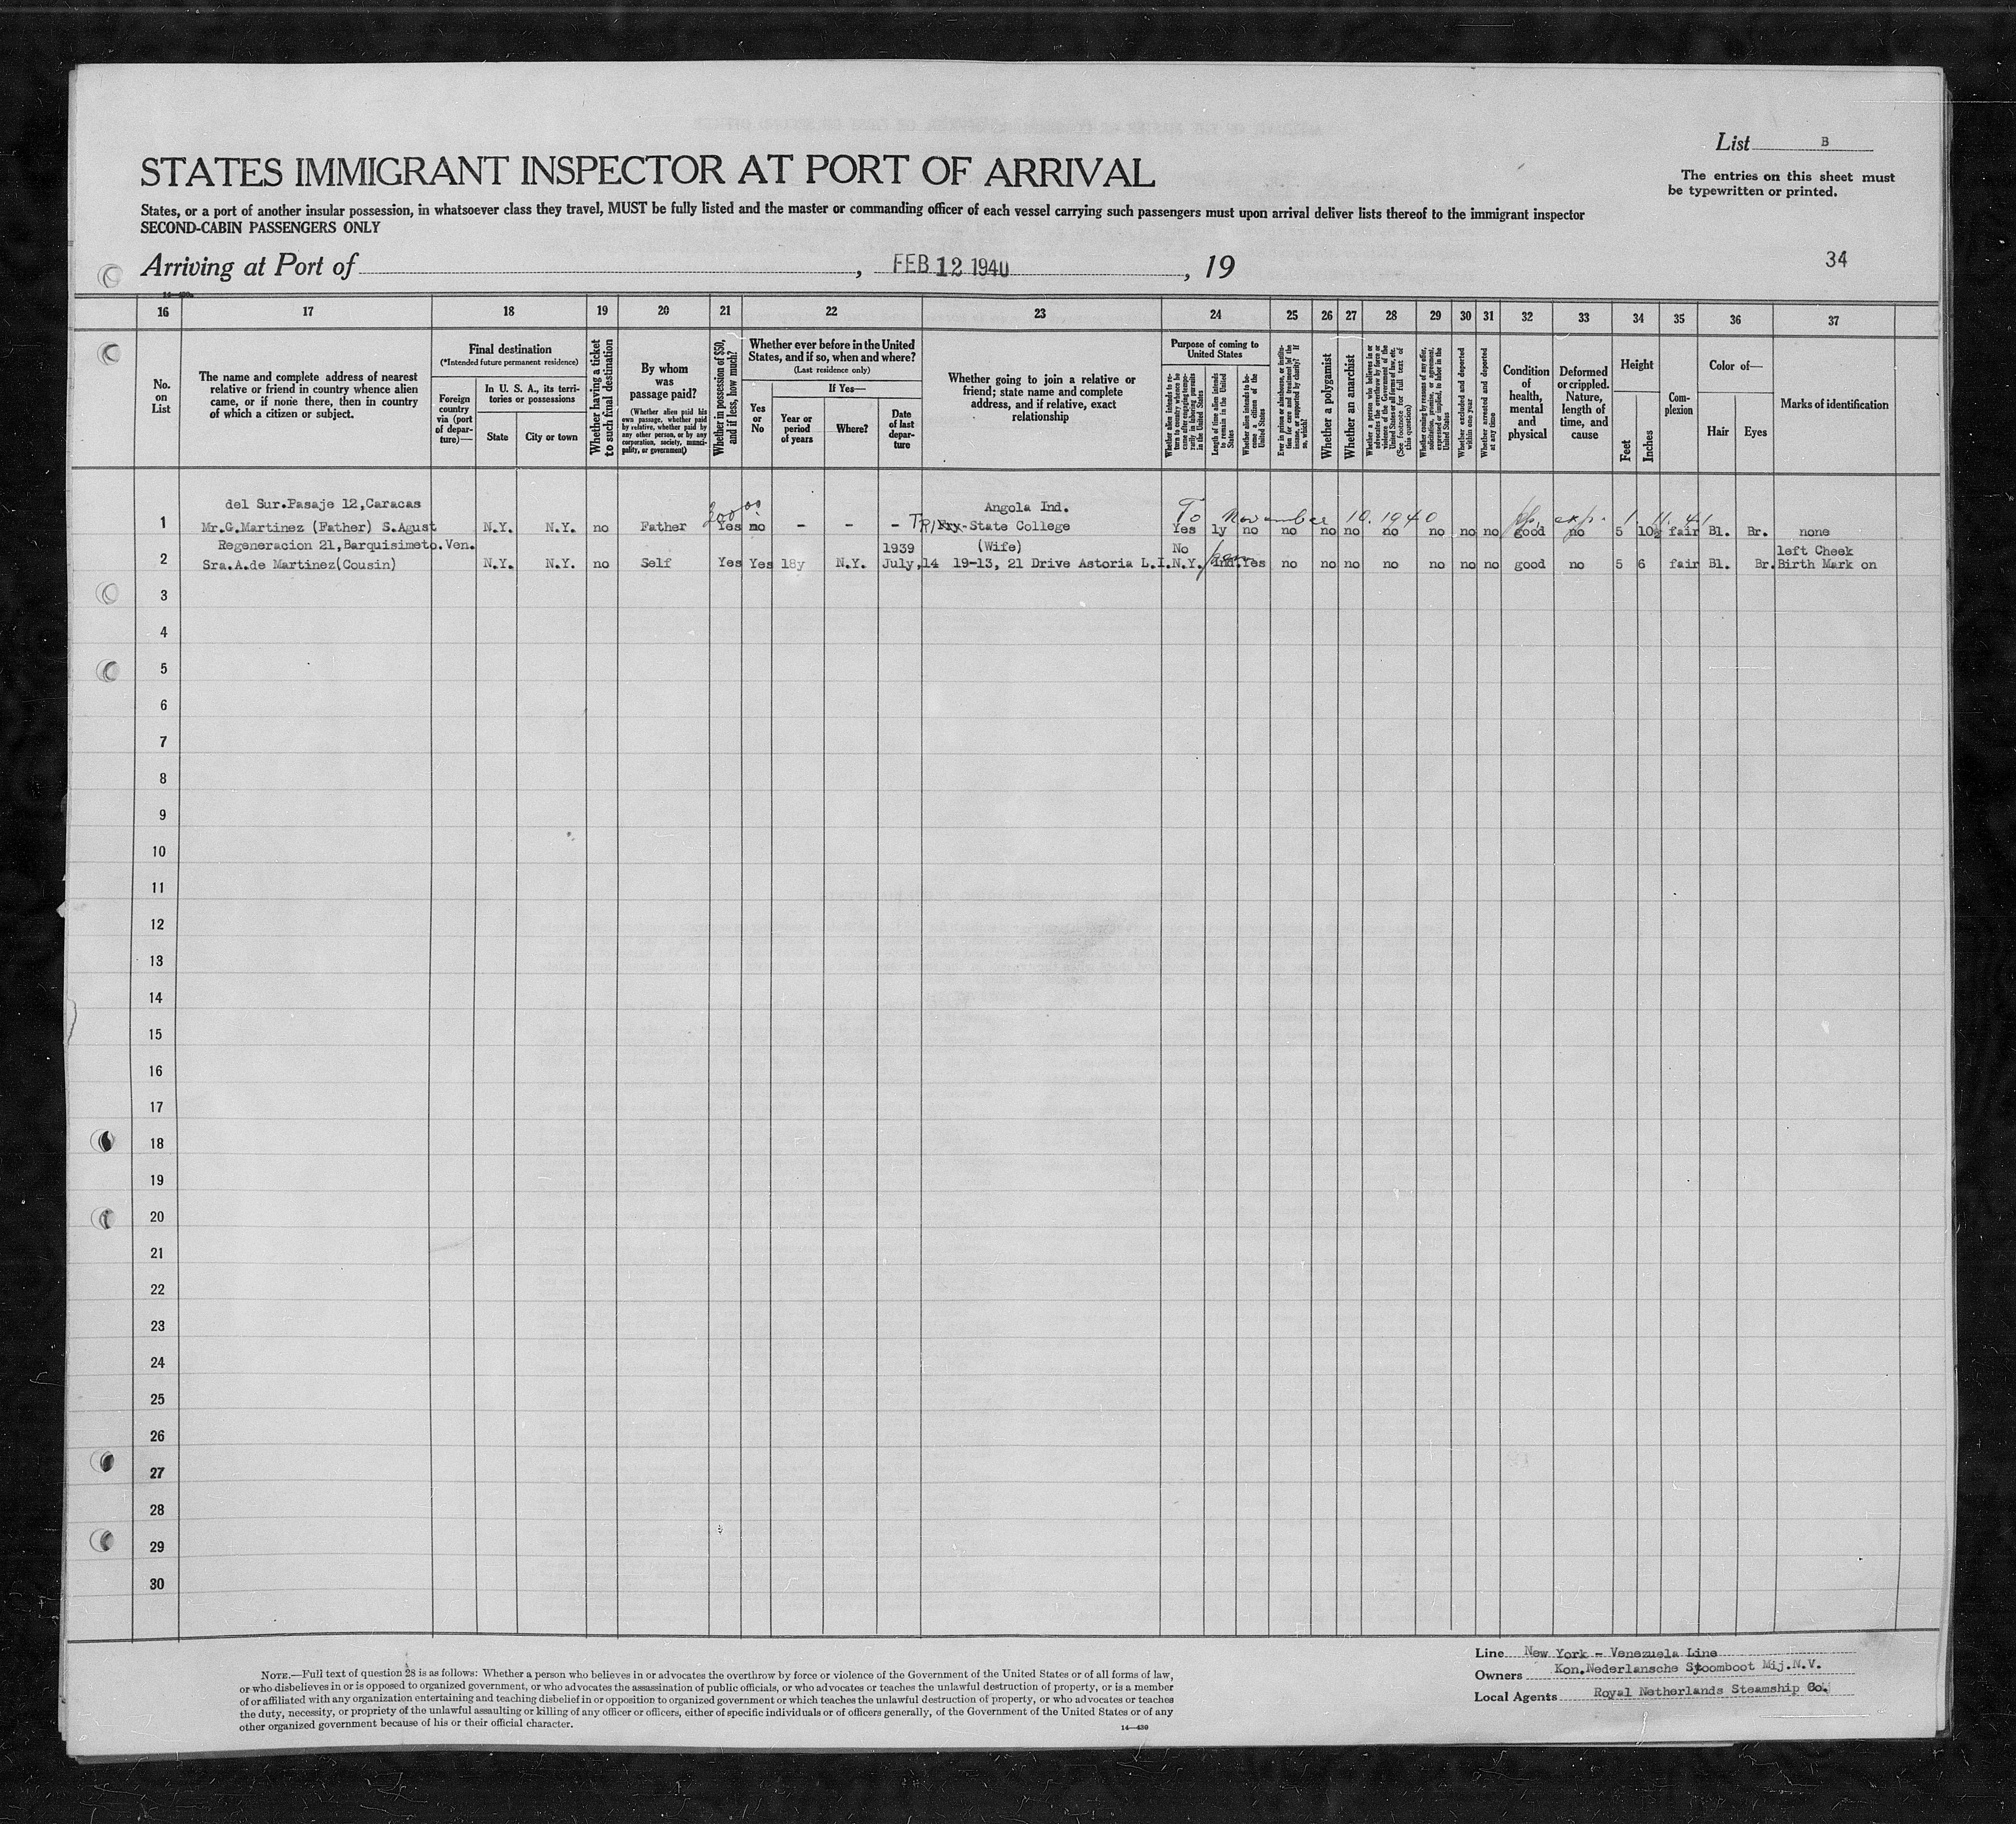 List B
STATES IMMIGRANT INSPECTOR AT PORT OF ARRIVAL
The entries on this sheet must
be typewritten or printed.
States, or a port of another insular possession, in whatsoever class they travel, MUST be fully listed and the master or commanding officer of each vessel carrying such passengers must upon arrival deliver lists thereof to the immigrant inspector
SECOND-CABIN PASSENGERS ONLY
Arriving at Port of , FEB 12 1940 , 19
34
16 17 18 19 20 21 22 23 24 25 26 27 28 29 30 31 32 33 34 35 36 37
No.
on
List
The name and complete address of nearest
relative or friend in country whence alien
came, or if none there, then in country
of which a citizen or subject.
Final destination
(*Intended future permanent residence)
Foreign
country
via (port
of depar-
ture)—
In U. S. A., its terri-
tories or possessions
State City or town
Whether having a ticket
to such final destination
By whom
was
passage paid?
(Whether alien paid his
own passage, whether paid
by relative, whether paid by
any other person, or by any
corporation, society, munici-
pality, or government)
Whether in possession of $50,
and if less, how much?
Whether ever before in the United
States, and if so, when and where?
(Last residence only)
Yes
or
No
If Yes—
Year or
period
of years
Where?
Date
of last
depar-
ture
Whether going to join a relative or
friend; state name and complete
address, and if relative, exact
relationship
Purpose of coming to
United States
Whether alien intends to re-
turn to country whence he
came after engaging tempo-
rarily in laboring pursuits
in the United States
Length of time alien intends
to remain in the United
States
Whether alien intends to be-
come a citizen of the
United States
Ever in prison or almshouse, or institu-
tion for care and treatment of the
insane, or supported by charity? If
so, which?
Whether a polygamist
Whether an anarchist
Whether a person who believes in or
advocates the overthrow by force or
violence of the Government of the
United States or all forms of law, etc.
(See footnote for full text of
this question)
Whether coming by reasons of any offer,
solicitation, promise, or agreement,
expressed or implied, to labor in the
United States
Whether excluded and deported
within one year
Whether arrested and deported
at any time
Condition
of
health,
mental
and
physical
Deformed
or crippled.
Nature,
length of
time, and
cause
Height
Feet
Inches
Com-
plexion
Color of—
Hair Eyes
Marks of identification
del Sur.Pasaje 12,Caracas 200 00 Angola Ind. To November 10. 1940 pp. exp. 1. 11. 41
1 Mr.G.Martinez (Father) S.Agust N.Y. N.Y. no Father Yes no - - - TRI State College Yes 1y no no no no no no no no good no 5 10½ fair Bl. Br. none
Regeneracion 21,Barquisimeto.Ven. 1939 (Wife) No left Cheek
2 Sra.A.de Martinez(Cousin) N.Y. N.Y. no Self Yes Yes 18y N.Y. July,14 19-13, 21 Drive Astoria L.I.N.Y. Ind. Yes no no no no no no no good no 5 6 fair Bl. Br. Birth Mark on
3
4
5
6
7
8
9
10
11
12
13
14
15
16
17
18
19
20
21
22
23
24
25
26
27
28
29
30
NOTE.—Full text of question 28 is as follows: Whether a person who believes in or advocates the overthrow by force or violence of the Government of the United States or of all forms of law,
or who disbelieves in or is opposed to organized government, or who advocates the assassination of public officials, or who advocates or teaches the unlawful destruction of property, or is a member
of or affiliated with any organization entertaining and teaching disbelief in or opposition to organized government or which teaches the unlawful destruction of property, or who advocates or teaches
the duty, necessity, or propriety of the unlawful assaulting or killing of any officer or officers, either of specific individuals or of officers generally, of the Government of the United States or of any
other organized government because of his or their official character.
14—430
Line New York - Venezuela Line
Owners Kon.Nederlansche Stoomboot Mij.N.V.
Local Agents Royal Netherlands Steamship Co.